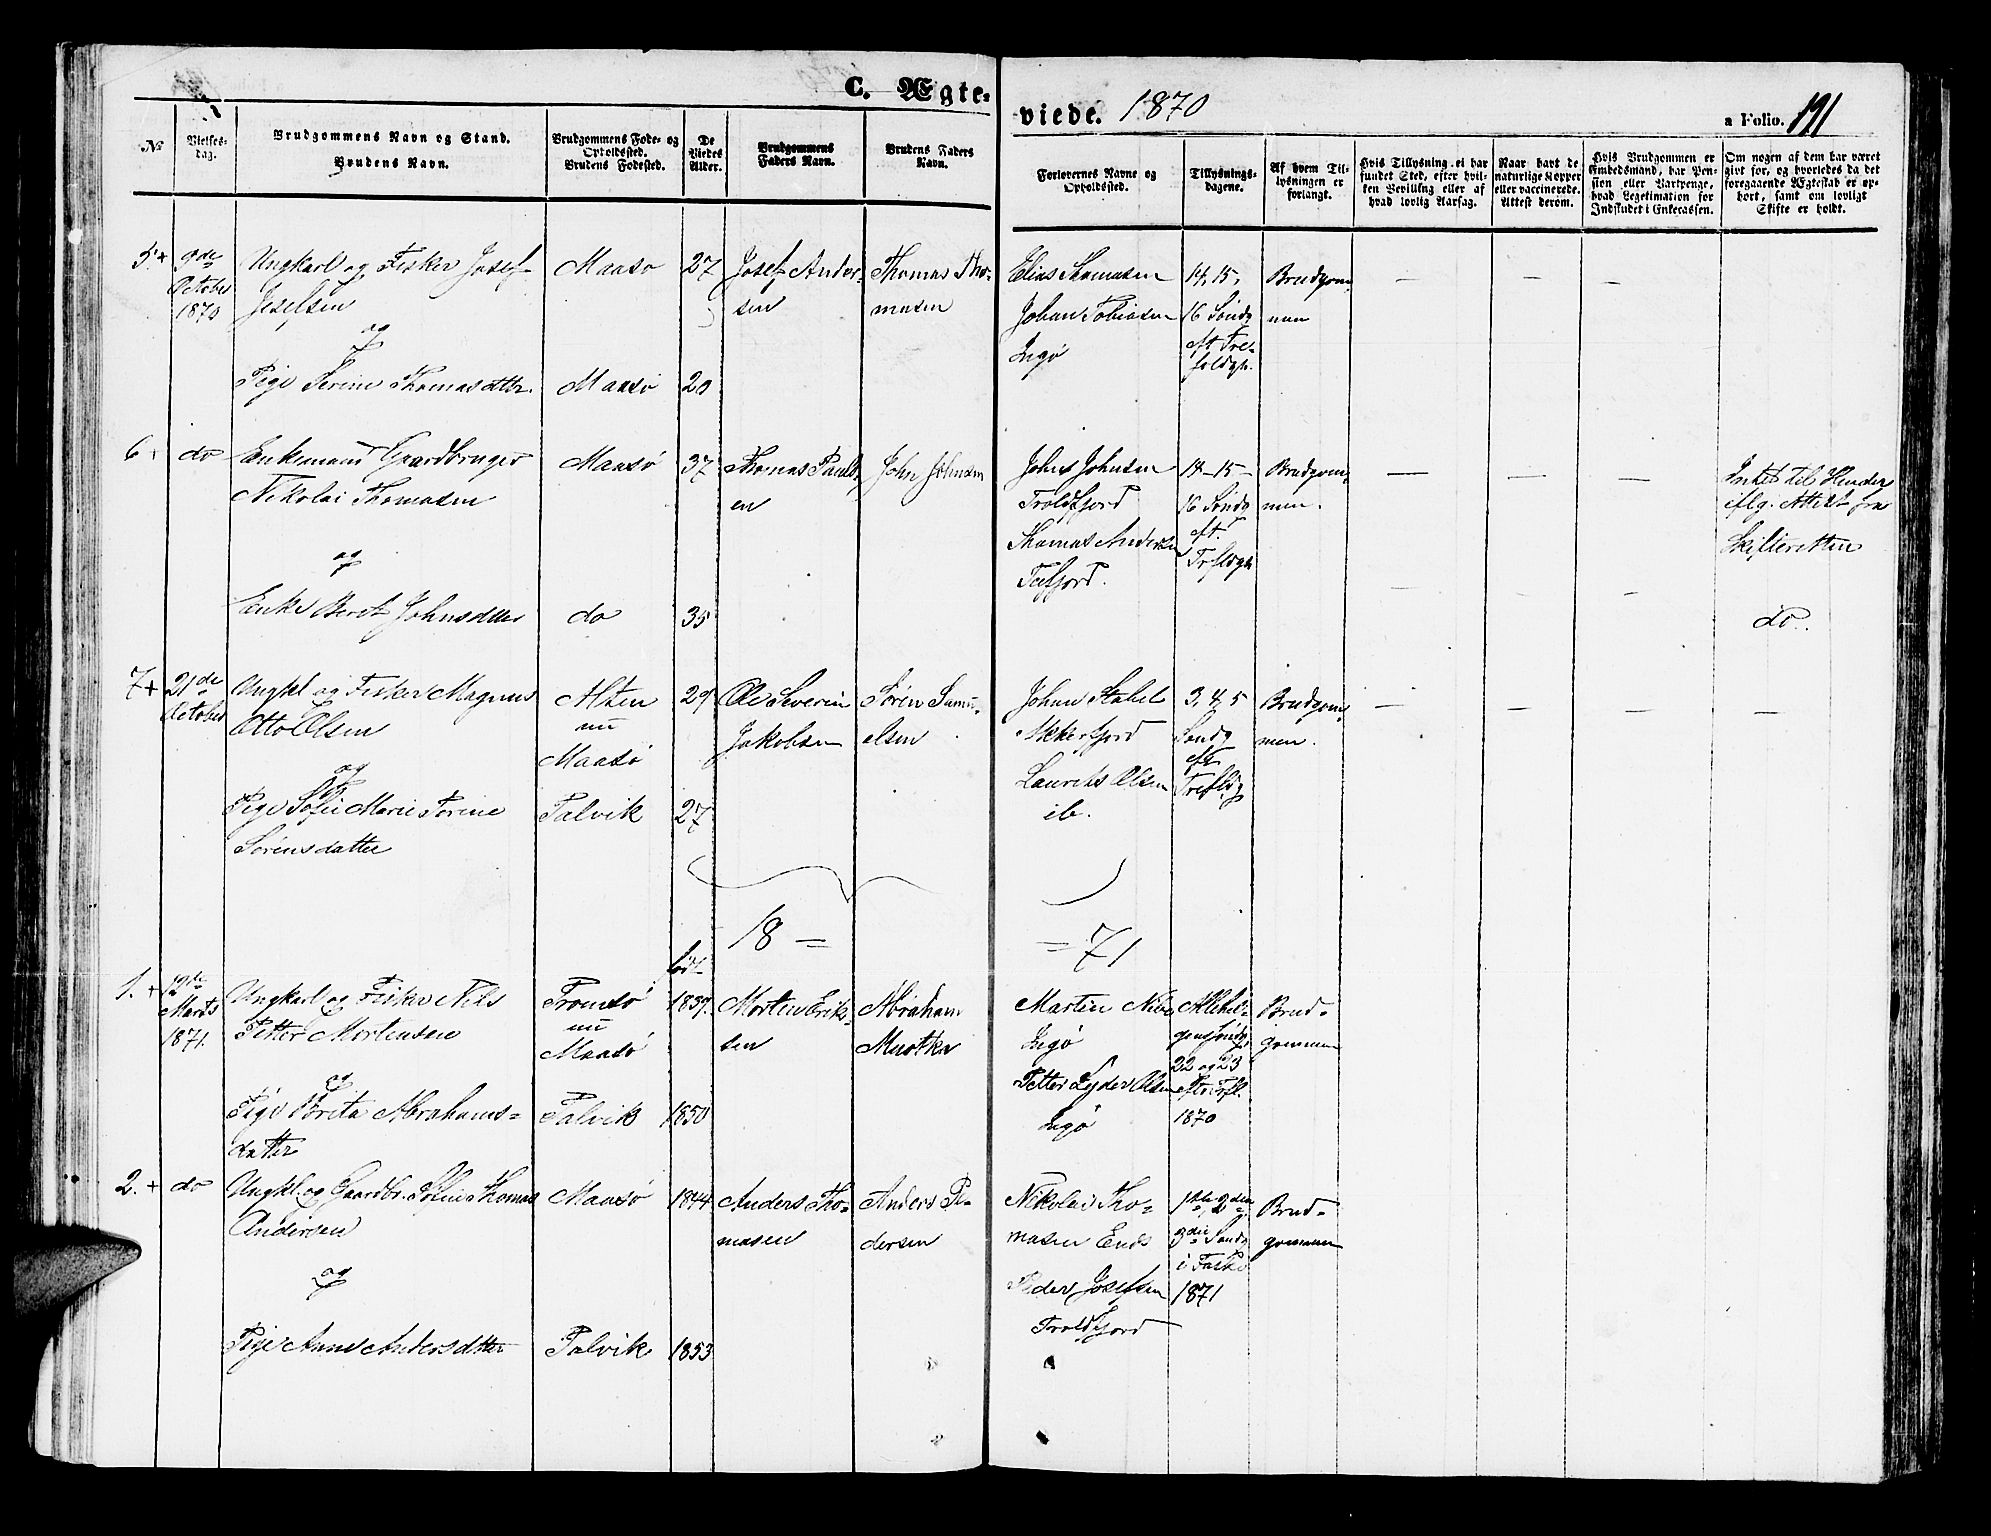 C. Ægte-
viede. 1870
a Folio. 191
No
Vielses-
dag.
Brudgommens Navn og Stand.
Brudens Navn.
Brudgommens Føde- og
Opholdssted.
Brudens Fødested.
De
Viedes
Alder.
Brudgommens
Faders Navn.
Brudens Faders
Navn.
Forlovernes Navne og
Opholdssted.
Tillysnings-
dagene.
Af hvem Til-
lysningen er
forlangt.
Hvis Tillysning ei har
fundet Sted, efter hvil-
ken Bevilling eller af
hvad lovlig Aarsag.
Naar havt de
naturlige Kopper
eller vaccinerede.
Attest derom.
Hvis Brudgommen er
Embedsmand, har Pen-
sion eller Vartpenge,
hvad Legitimation for
Indskudet i Enkecassen.
Om nogen af dem har været
givt før, og hvorledes da det
foregaaende Ægteskab er op-
hørt, samt om lovligt
Skifte er holdt.
5+
9de
October
1870
Ungkarl og Fisker Josef
Josefsen
og
Pige Serine Thomasdttr.
Maasø
Maasø
27
20
Josef Ander-
sen
Thomas Tho-
masen
Elias Thomasen
Johan Tobiasen
Ingø
14, 15,
16 Søndg
eft Tre-
foldgh.
Brudgom-
men
6
do
Enkemand Gaardbruger
Nikolai Thomasen
og
Enke Berit Johnsdtter
Maasø
do
37
35
Thomas Pauls-
en
John Johnsen
Johns Johnsen
Troldfjord
Thomas Andersen
Tufjord.
14-15-
16 Søndg
eft.
Trefoldgh
Brudgom-
men.
Intet til Hinder
iflg. Attest fra
Skifteretten
do.
7+
21de
October
Ungkl og Fisker Magnus
Otto Olsen
og
Pige Sofie Marie Serine
Sørensdatter
Alten
nu
Maasø
Talvik
29
27
Ole Severin
Jakobsen
Søren Samu-
elsen
Johan Stabel
Akkerfjord
Laurits Olsen
ib.
3, 4, 5
Søndg
eft
Trefldg
Brudgom-
men.
18 =
= 71
født
1. +
12te
Marts
1871.
Ungkarl og Fisker Nils
Petter Mortensen
og
Pige Brita Abrahams-
datter
Tromsø
nu
Maasø
Talvik
1839.
1850
Morten Erik-
sen
Abraham
Muotka
Martin
Ingø
Petter Lyder Olsen
Ingø
Allehel-
gens Søndg,
22 og 23
efter Trfl.
1870
Brud-
gommen
2. +
do
Ungkl. og Gaardbr. Thomas
Andersen
og
Pige Anne Andersdtter
Maasø
Talvik
1844
1853
Anders Tho-
masen
Anders Pe-
dersen
Nikolai Tho-
masen
Peder Josefsen
Troldfjord
1ste, 2den,
3die Søndg
i Faste
1871
Brud-
gommen